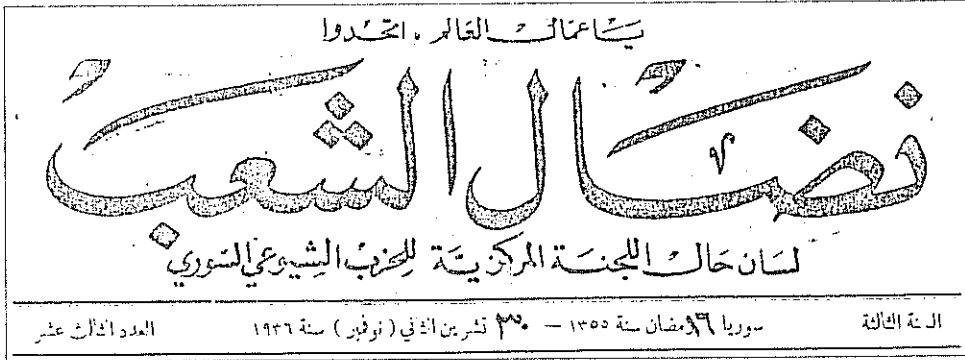 يا عمال العالم ، اتحدوا
نضال الشعب
لسان حال اللجنة المركزية للحزب الشيوعي السوري
السنة الثالثة سوريا ١٦ رمضان سنة ١٣٥٥ — ٣٠ تشرين الثاني ( نوفمبر ) سنة ١٩٣٦ العدد الثالث عشر